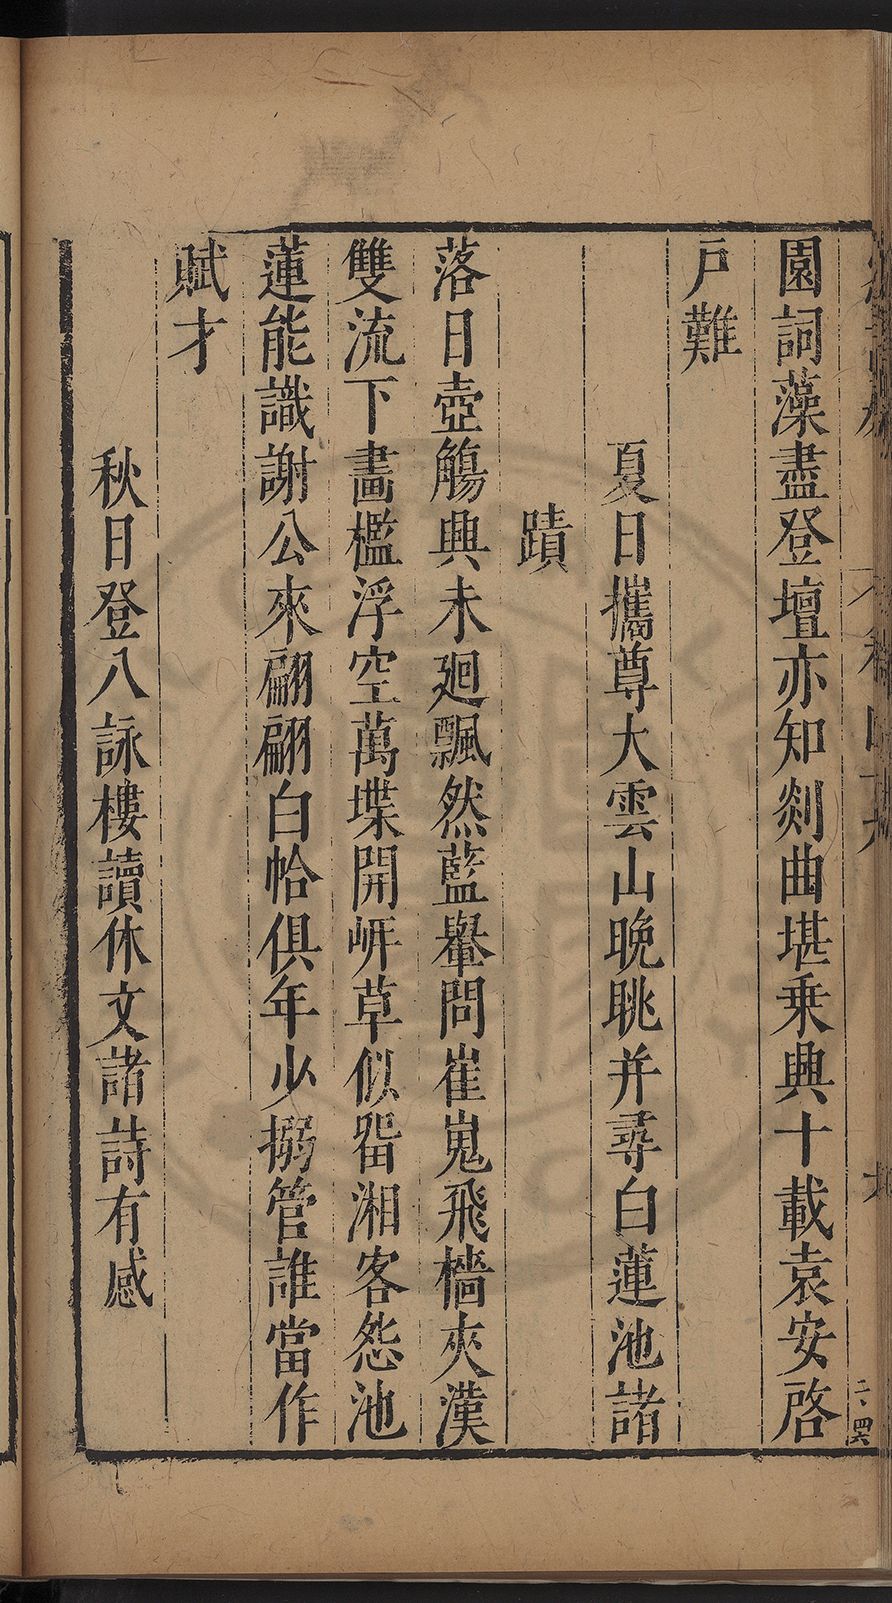 園詞藻盡登壇亦知剡曲堪乗興十載袁安啓
戶難
夏日攜尊大雲山晚眺并尋白蓮池諸
蹟
落日壺觴興未廻飄然藍轝問崔嵬飛檣夾漢
雙流下畵檻浮空萬堞開岍草似畱湘客怨池
蓮能識謝公來翩翩白帢俱年少搦管誰當作
賦才
秋日登八詠樓讀休文諸詩有感
二、四六